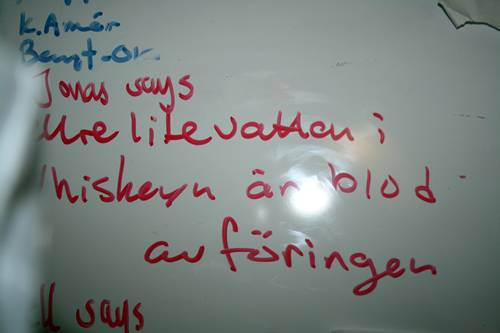 K. Amér
Bengt-Or
Jonas says
lite vatten i
whiskeyn är blod
av föringen
says